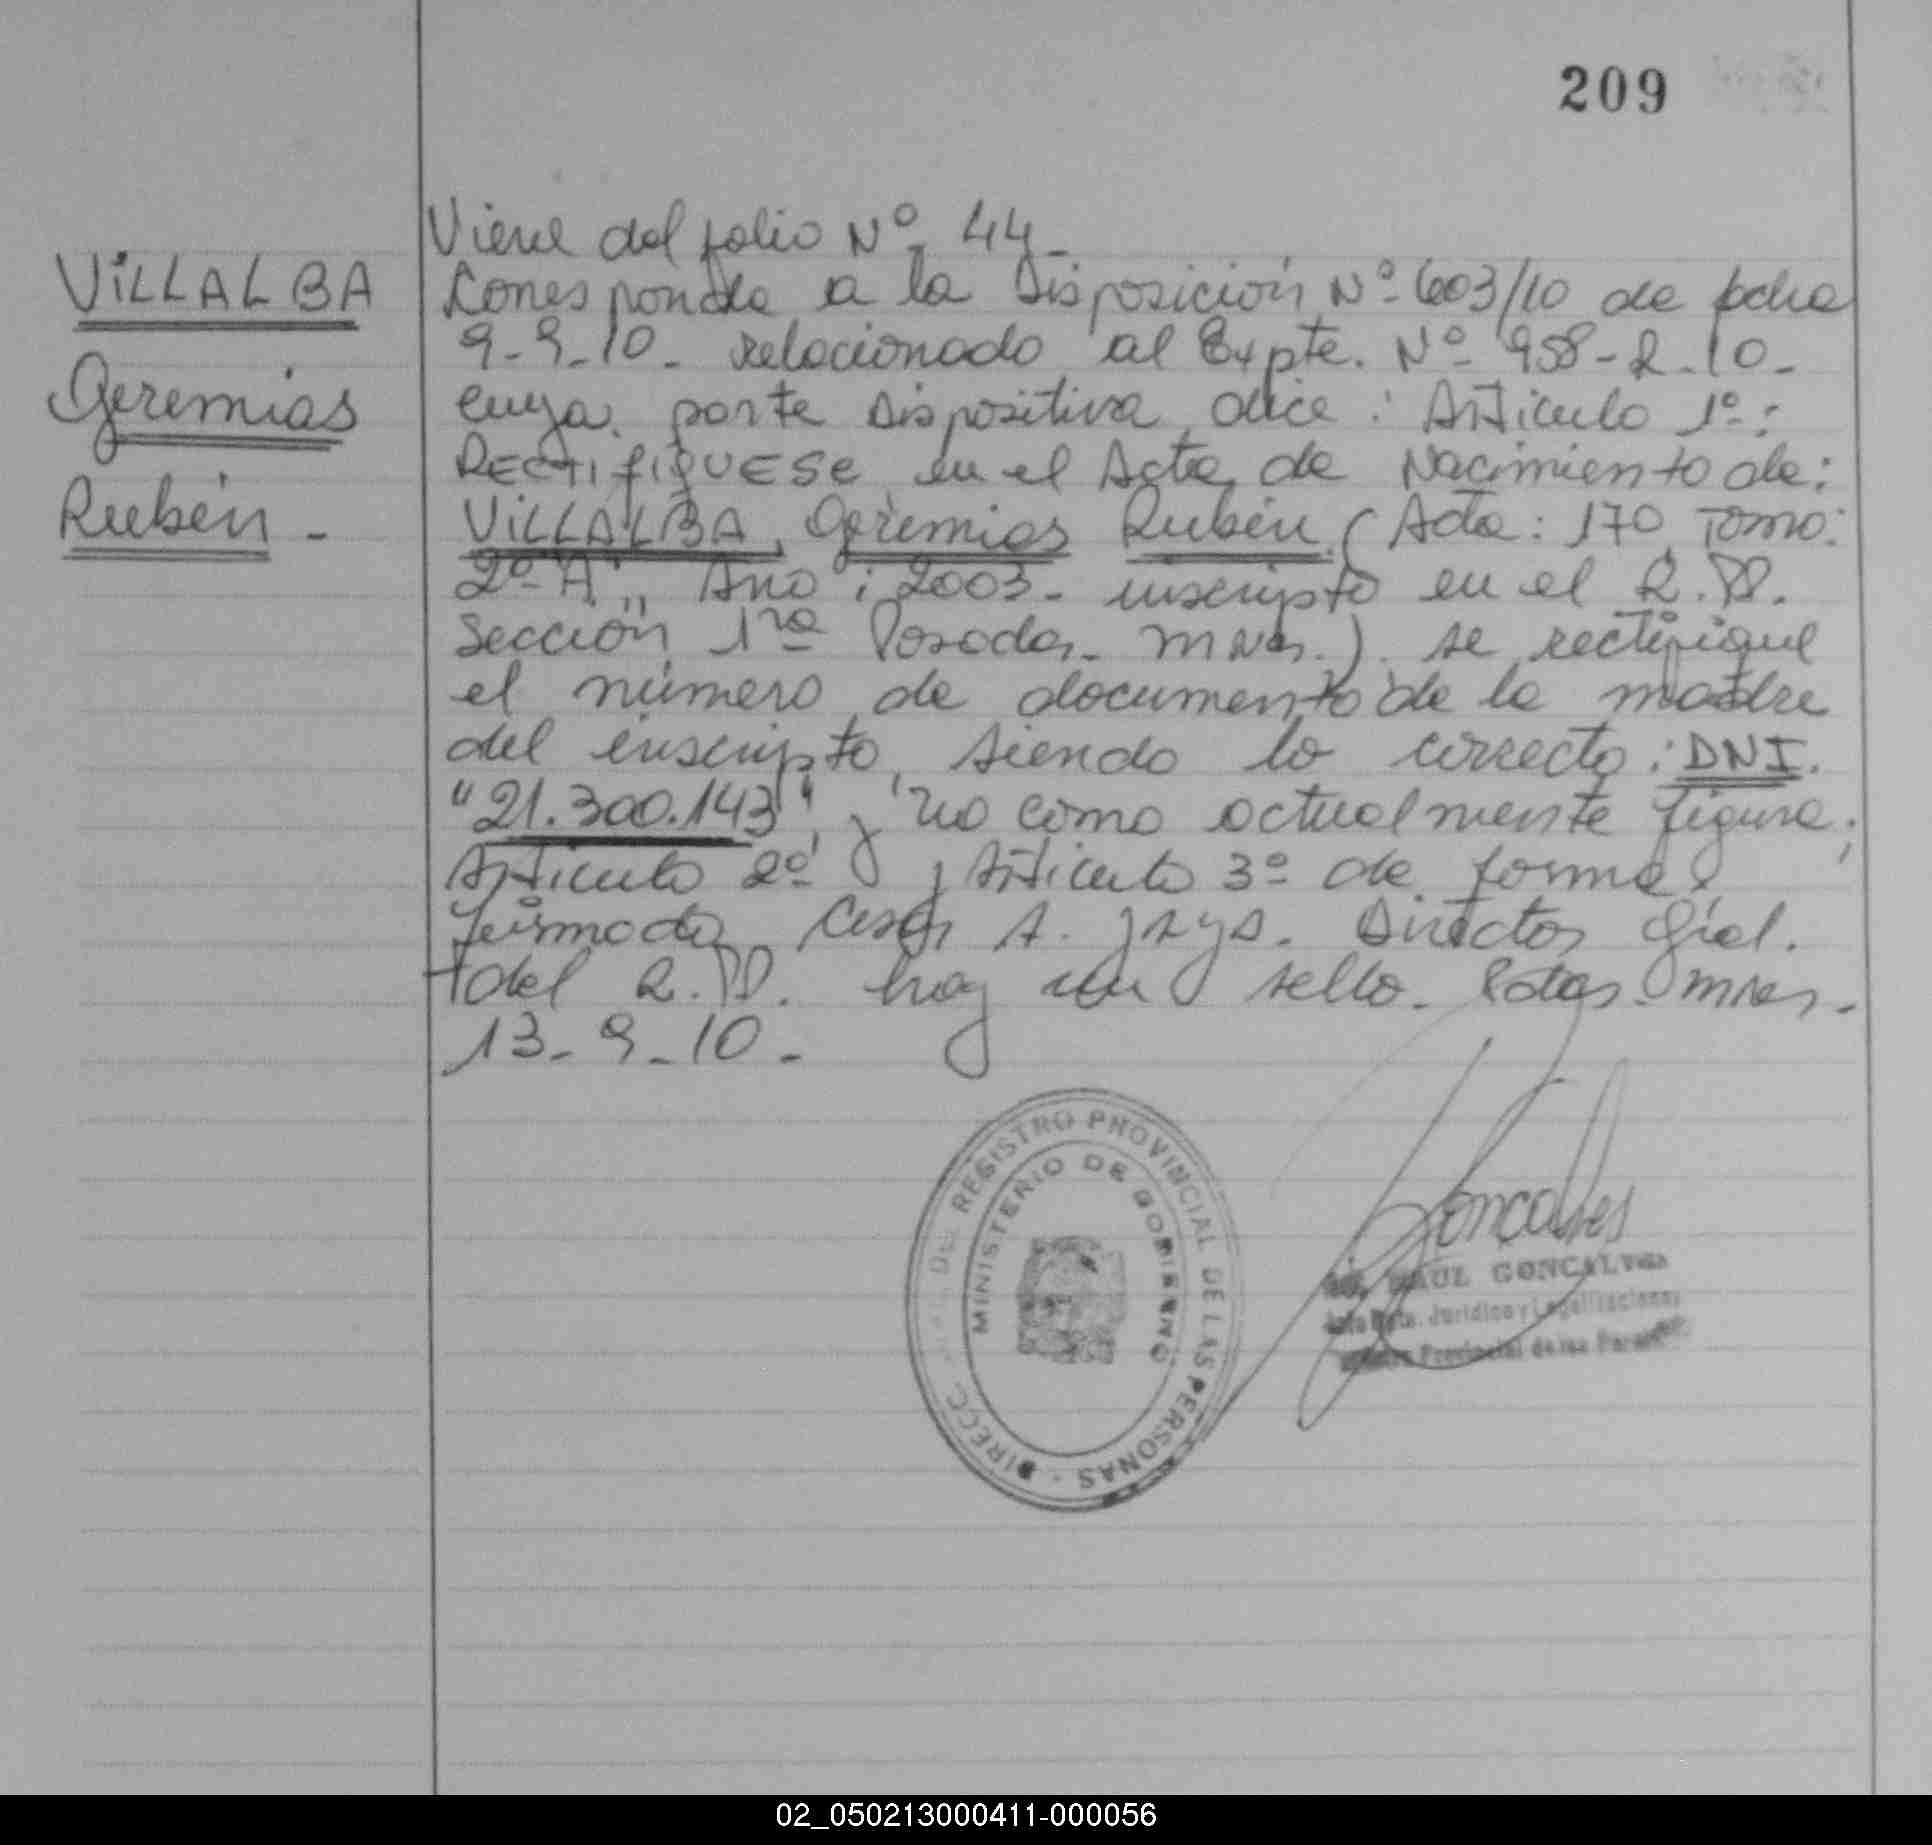 209
VILLALBA
Geremias
Rubén -
Viene del folio Nº 44 -
Corresponde a la Disposición Nº 603/10 de fecha
9-9-10- relacionado al Expte. Nº 958-R-10-
cuya parte Dispositiva dice: Artículo 1º:
RECTIFIQUESE en el Acta de Nacimiento de:
VILLALBA, Geremias Rubén. (Acta: 170 Tomo:
2º "A", Año: 2003- inscripto en el R.PP.
Sección 1ra Posadas - Mnes.). se rectifique
el número de documento de la madre
del inscripto, siendo lo correcto: DNI.
"21.300.143", y no como actualmente figura;
Artículo 2º y Artículo 3º de forma.
firmado, Cesar A. Director Gral.
del R.PP. hay un sello. Pdas Mnes.
13-9-10-
DIRECC. DEL REGISTRO PROVINCIAL DE LAS PERSONAS -
MINISTERIO DE GOBIERNO
Goncalves
RAUL GONCALVES
Jefe Dpto. Jurídico y Legalizaciones
Registro Provincial de las Personas
02_050213000411-000056